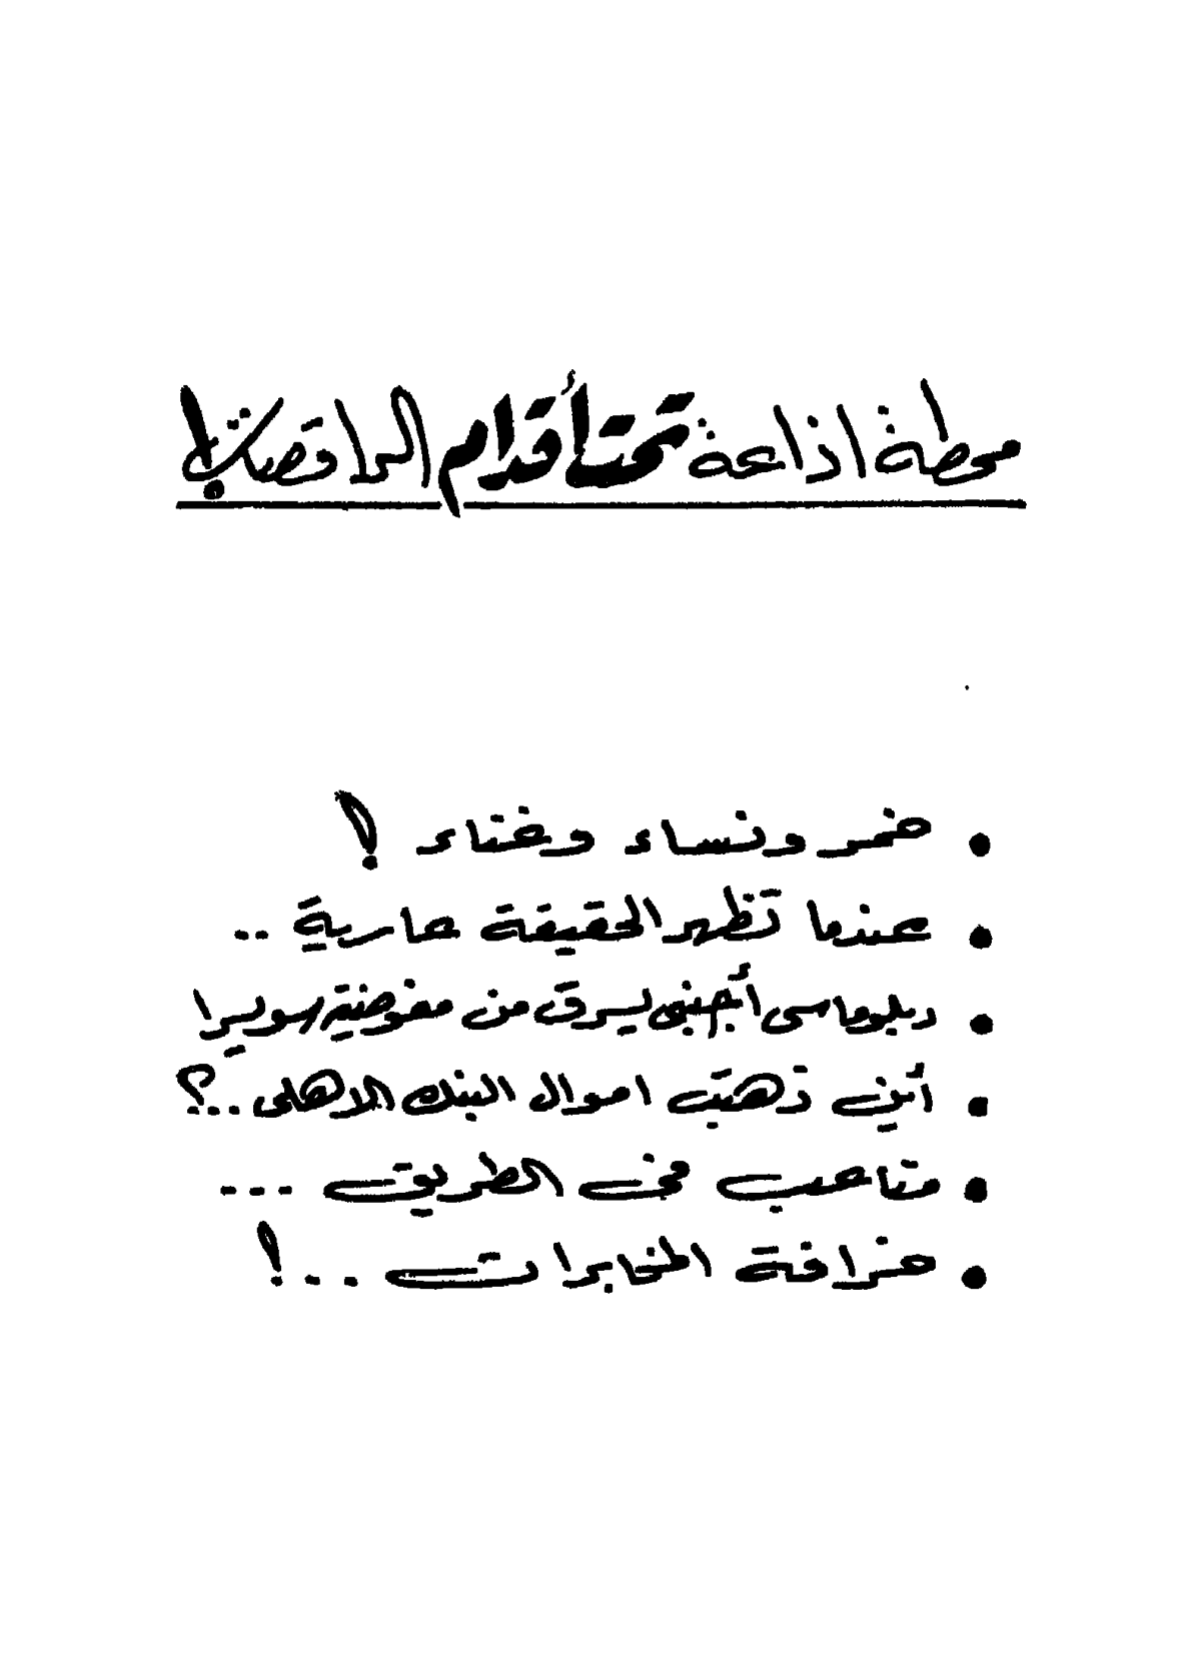 محطة اذاعة تحت أقدام الراقصات!
• خمر ونساء وغناء !
• عندما تظهر الحقيقة عارية ..
• دبلوماسى أجنبى يسرق من مفوضية سويسرا
• أين ذهبت اموال البنك الاهلى ..؟
• متاعب فى الطريق ...
• خرافة المخابرات ..!